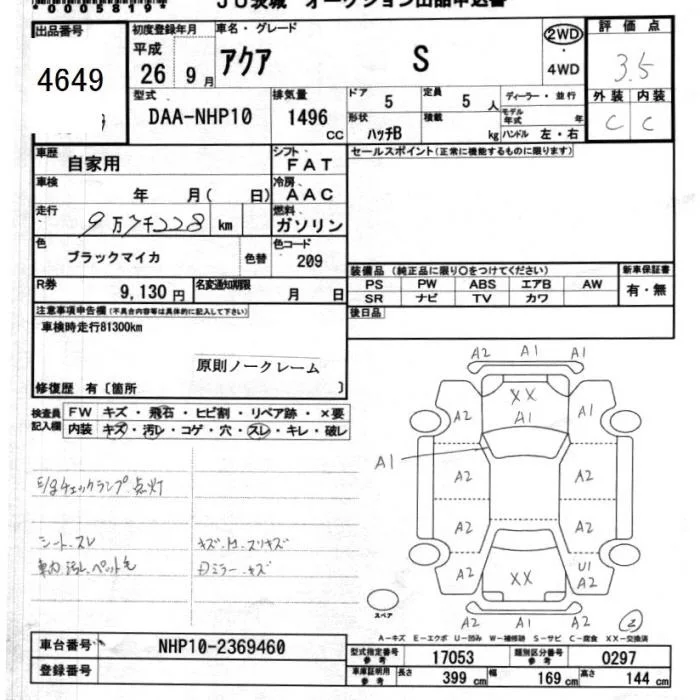 *0005819*
JU茨城 オークション出品申込書
出品番号
4649
初度登録年月
平成
26 9 月
車名・グレード
アクア S
2WD
・
4WD
評価点
3.5
型式
DAA-NHP10
排気量
1496
CC
ドア 5
定員 5 人
形状
ハッチB
積載
kg
ディーラー・並行
モデル年式 年
ハンドル 左・右
外装 内装
C C
車歴
自家用
シフト
FAT
セールスポイント(正常に機能するものに限ります)
車検
年 月( 日)
冷房
AAC
走行
9万7千228 km
燃料
ガソリン
色
ブラックマイカ
色替
色コード
209
装備品 (純正品に限り○をつけてください)
新車保証書
PS PW ABS エアB AW
SR ナビ TV カワ
有・無
R券
9,130 円
名変通知期限
月 日
後日品
注意事項申告欄(不具合内容等は具体的に記入して下さい)
車検時走行81300km
原則ノークレーム
修復歴 有〔箇所 〕
検査員記入欄
FW キズ・飛石・ヒビ割・リペア跡・×要
内装 キズ・汚レ・コゲ・穴・スレ・キレ・破レ
E/gチェックランプ点灯
シート、スレ
キズ・スリキズ
車内汚レ、ペット毛
Dミラーキズ
A2 A1 A1
XX
A1
A2 A1
A1
A2 A2
A2 A2
A2 XX U1
A2
A2 A1 A2
スペア
2
A-キズ E-エクボ U-凹み W-補修跡 S-サビ C-腐食 XX-交換済
車台番号
NHP10-2369460
登録番号
型式指定番号
参考
17053
類別区分番号
参考
0297
車庫証明用
参考
長さ 399 cm
幅 169 cm
高さ 144 cm